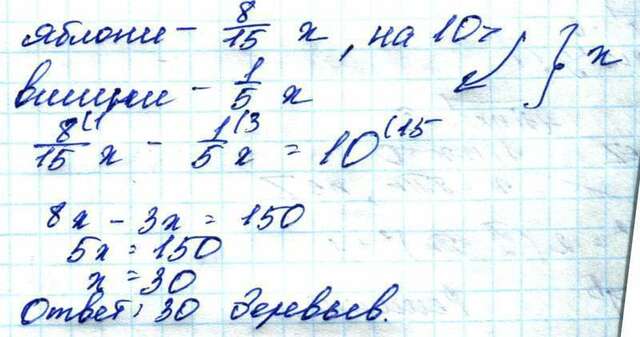 яблони - 8/15 x, на 10 > } x
вишни - 1/5 x
8/15 (1 x - 1/5 (3 x = 10 (15
8x - 3x = 150
5x = 150
x = 30
Ответ: 30 деревьев.